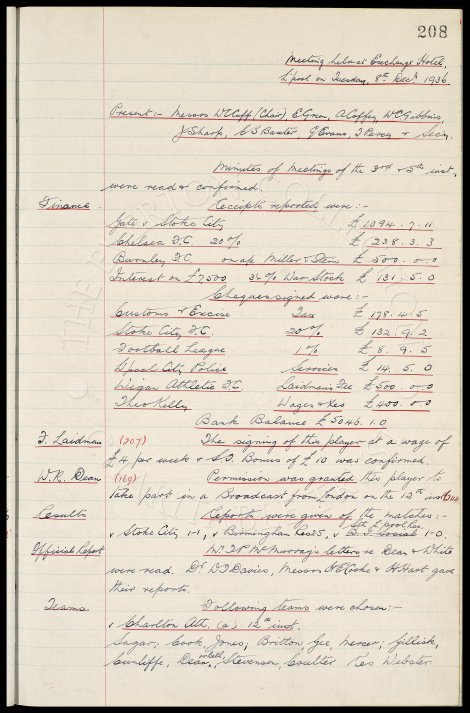 208
Meeting held at Exchange Hotel,
L'pool on Tuesday, 8th Decr. 1936
Present:- Messrs W.C. Cuff (Chair) E Green, A Coffey, W.C. Gibbins,
J Sharp, C S Baxter, G Evans, T Percy & Secy.
Minutes of Meetings of the 3rd & 5th inst.,
were read & confirmed.
Finance. Receipts reported were:-
Gate v Stoke City £ 1094.7.11
Chelsea F.C. 20% £ 238.3.3
Burnley F.C. on a/c Miller & Stein £ 500.0.0
Interest on £7500 3½% War Stock £ 131.5.0
Cheques signed were:-
Customs & Excise Tax £ 178.4.5
Stoke City F.C. 20% £ 132.9.2
Football League 1% £ 8.9.5
L'pool City Police Services £ 14.5.0
Wigan Athletic F.C. Laidman's Fee £500.0.0
Theo Kelly Wages & Exs £400.0.0
Bank Balance £5046.1.0
F. Laidman (207) The signing of this player at a wage of
£4 per week & S.O. Bonus of £10 was confirmed.
W.R. Dean (169) Permission was granted this player to
take part in a Broadcast from London on the 13th inst
Results Reports were given of the matches:-
v Stoke City 1-1, v Birmingham Res 2-5, v 1-0
Official Report Mr. T.P. McMurray's letters re Dean & White
were read. Dr D J Davies, Messrs H E Cooke & H Hart gave
their reports.
Teams Following teams were chosen:-
v Charlton Ath. (a) 12th inst.
Sagar; Cook Jones; Britton, Gee, Mercer; Gillick,
Cunliffe, Dean, Stevenson, Coulter Res Webster.